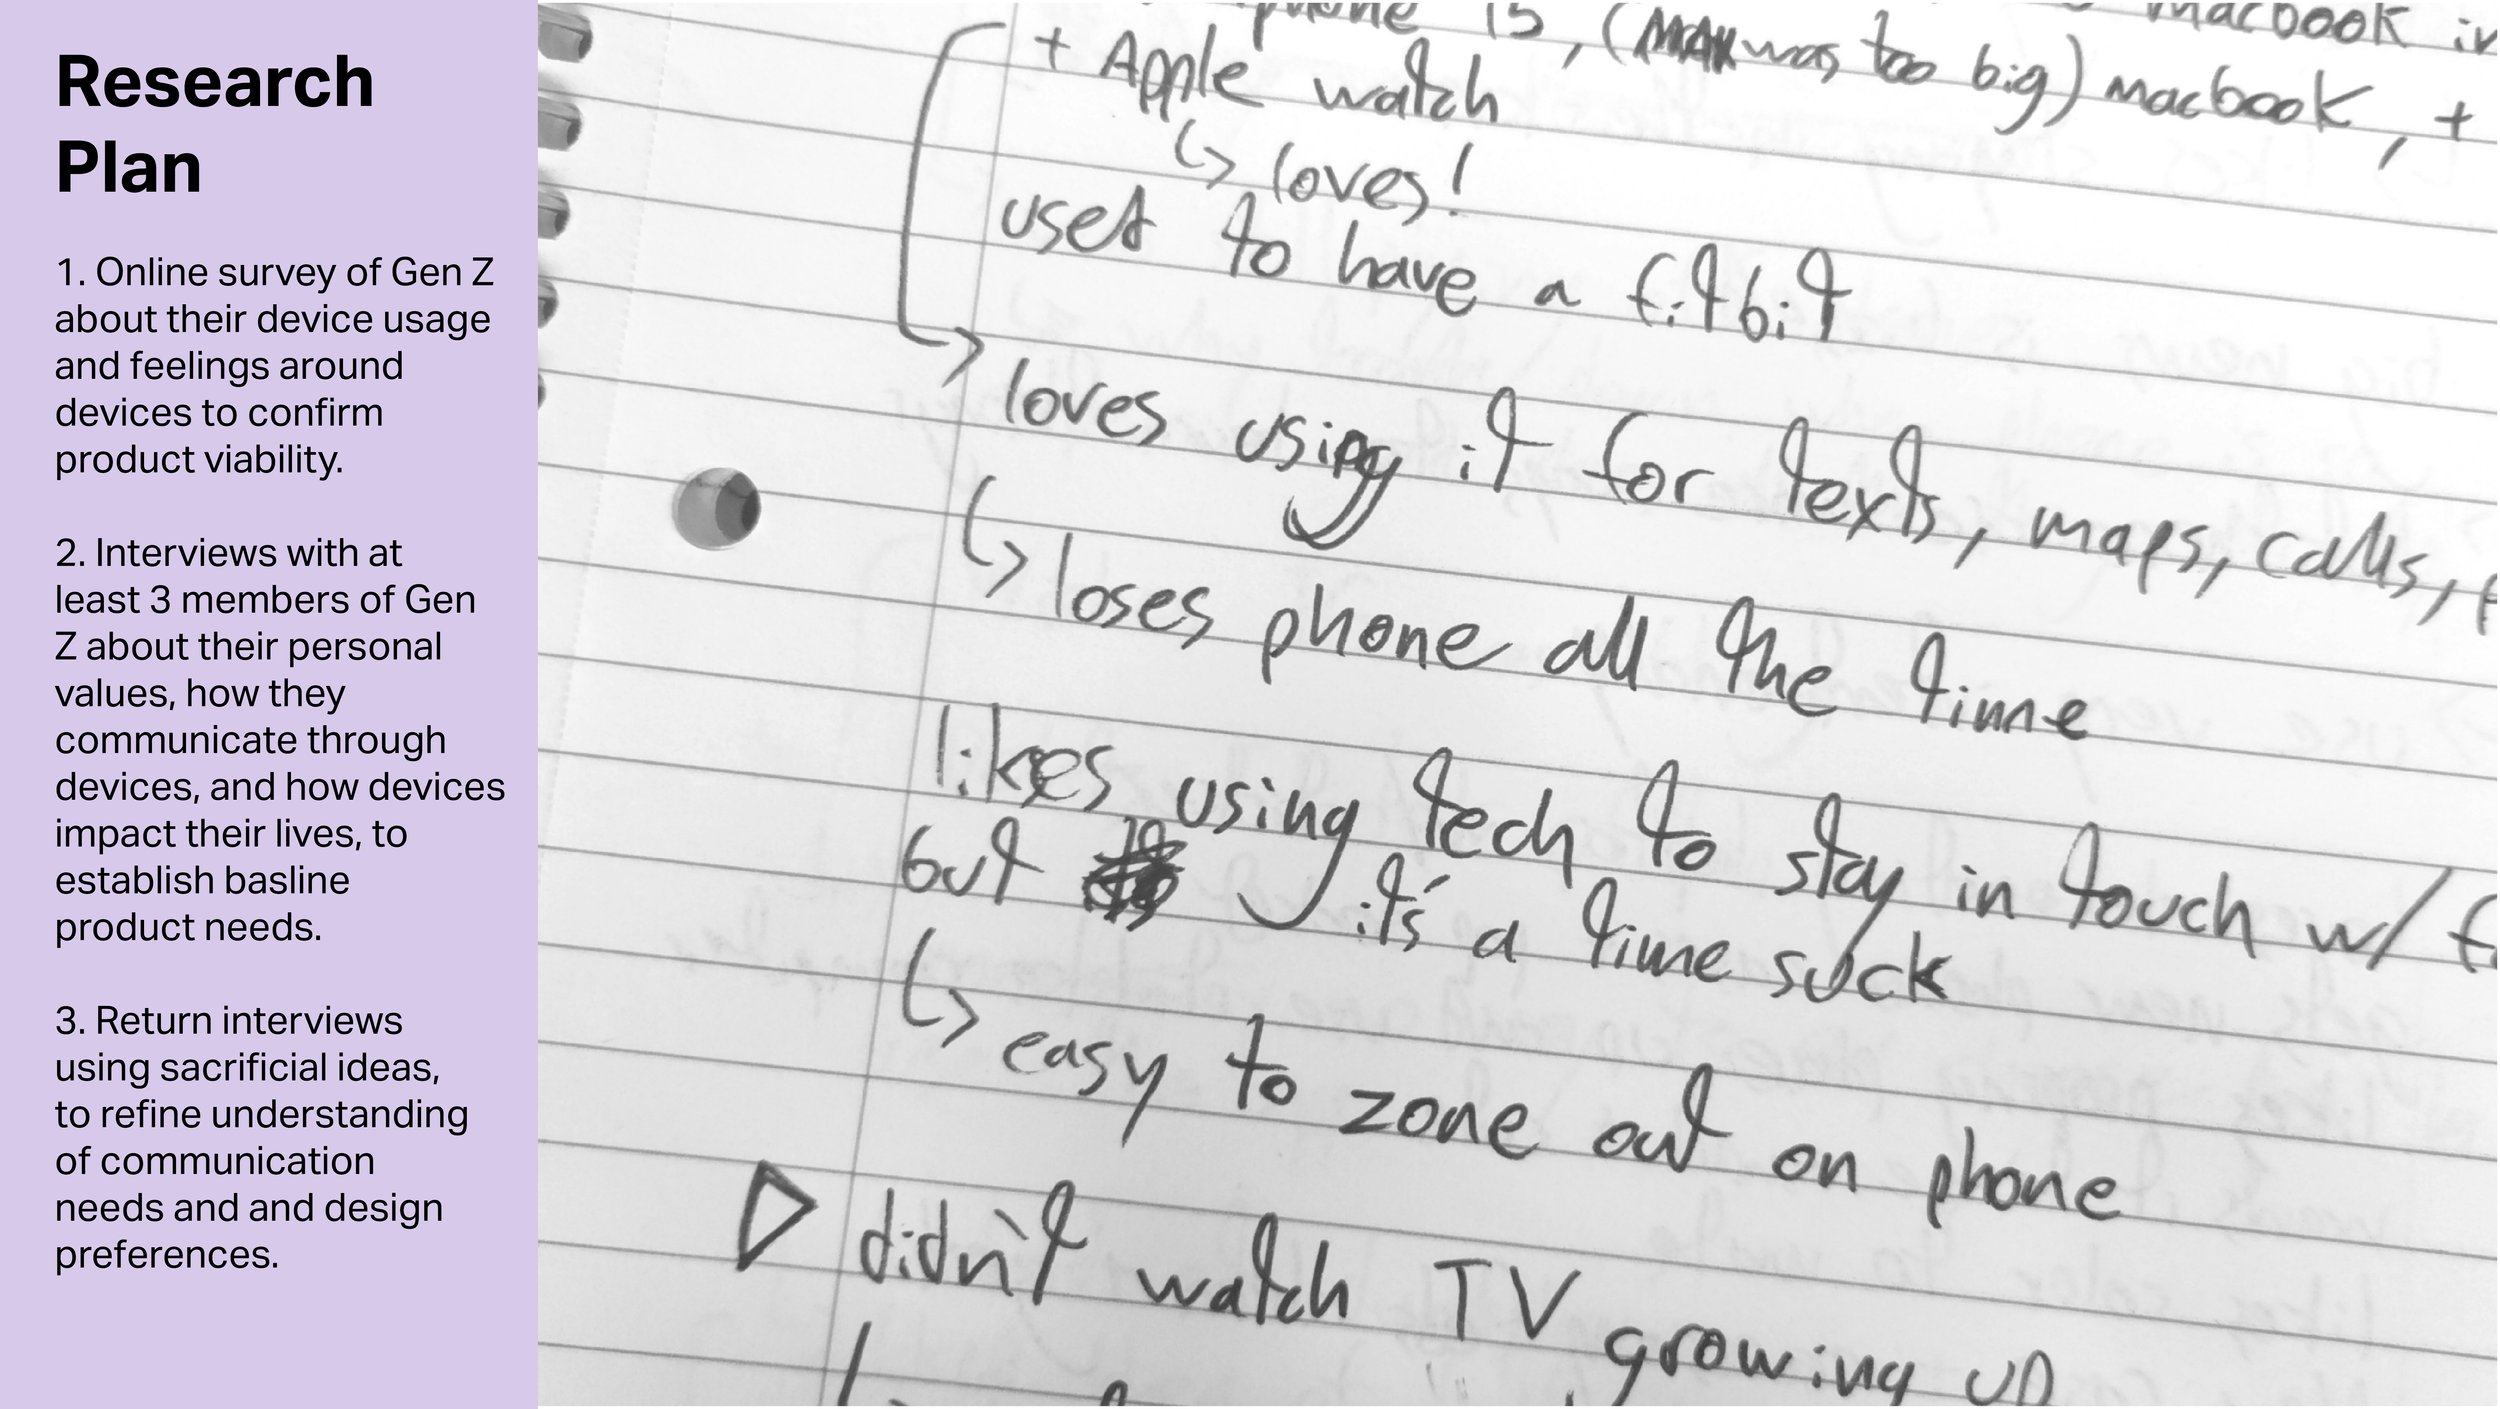 Research
Plan
1. Online survey of Gen Z
about their device usage
and feelings around
devices to confirm
product viability.
2. Interviews with at
least 3 members of Gen
Z about their personal
values, how they
communicate through
devices, and how devices
impact their lives, to
establish basline
product needs.
3. Return interviews
using sacrificial ideas,
to refine understanding
of communication
needs and and design
preferences.
iphone 15, (MAX was too big) macbook, +
macbook
+ Apple watch
↳ loves!
used to have a fitbit
→ loves using it for texts, maps, calls,
↳ loses phone all the time
likes using tech to stay in touch w/
but it's a time suck
↳ easy to zone out on phone
▷ didn't watch TV growing up